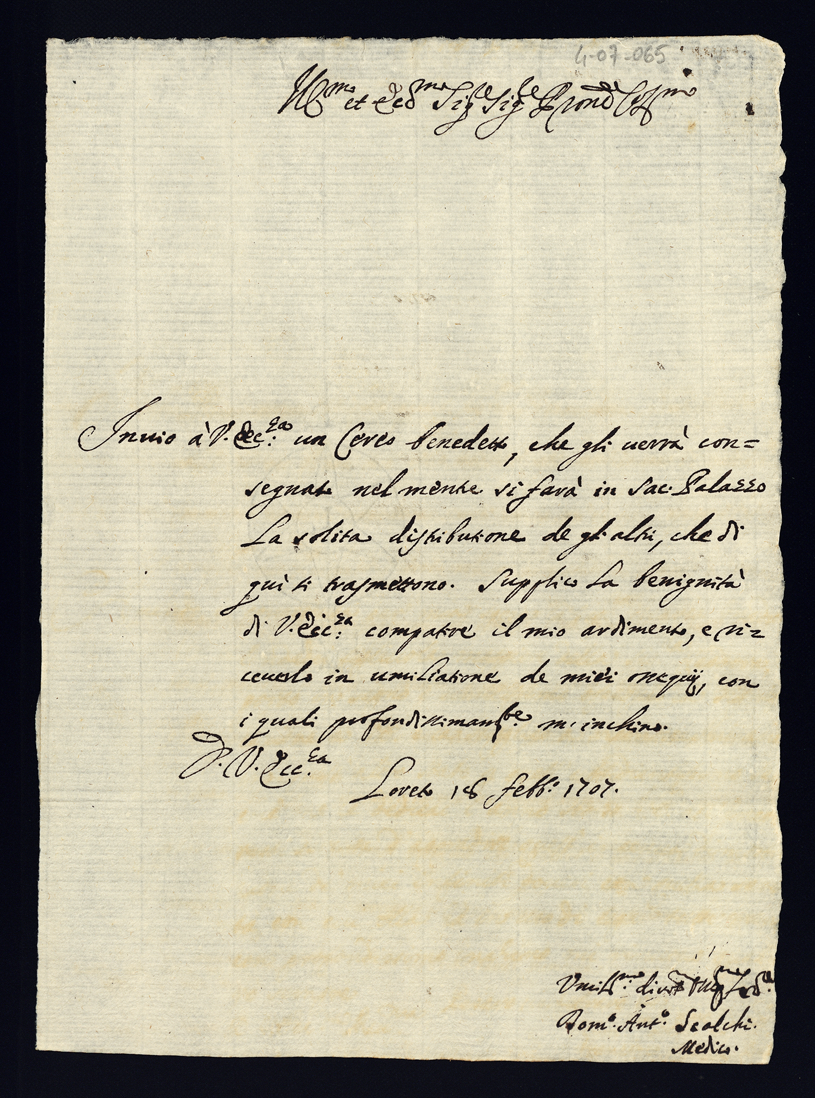 4-07-065
Ill.mo et Ecc.mo Sig.re Sig.re P.rone Col.mo
Inuio à V. Ecc.za un Cereo benedetto, che gli uerrà con=
segnato nel mentre si farà in Sac: Palazzo
La solita distributione de gli altri, che di
quì si trasmettono. Supplico La benignità
di V. Ecc.za compatire il mio ardimento, e ri=
ceuerlo in umiliatione de miei ossequij, con
i quali profondissimam.te m'inchino.
D. V. Ecc.za
Loreto 18 febb.o 1707.
Vmil.mo diuot.mo Obl.mo
Dom.o Ant.o Scalchi.
Medico.